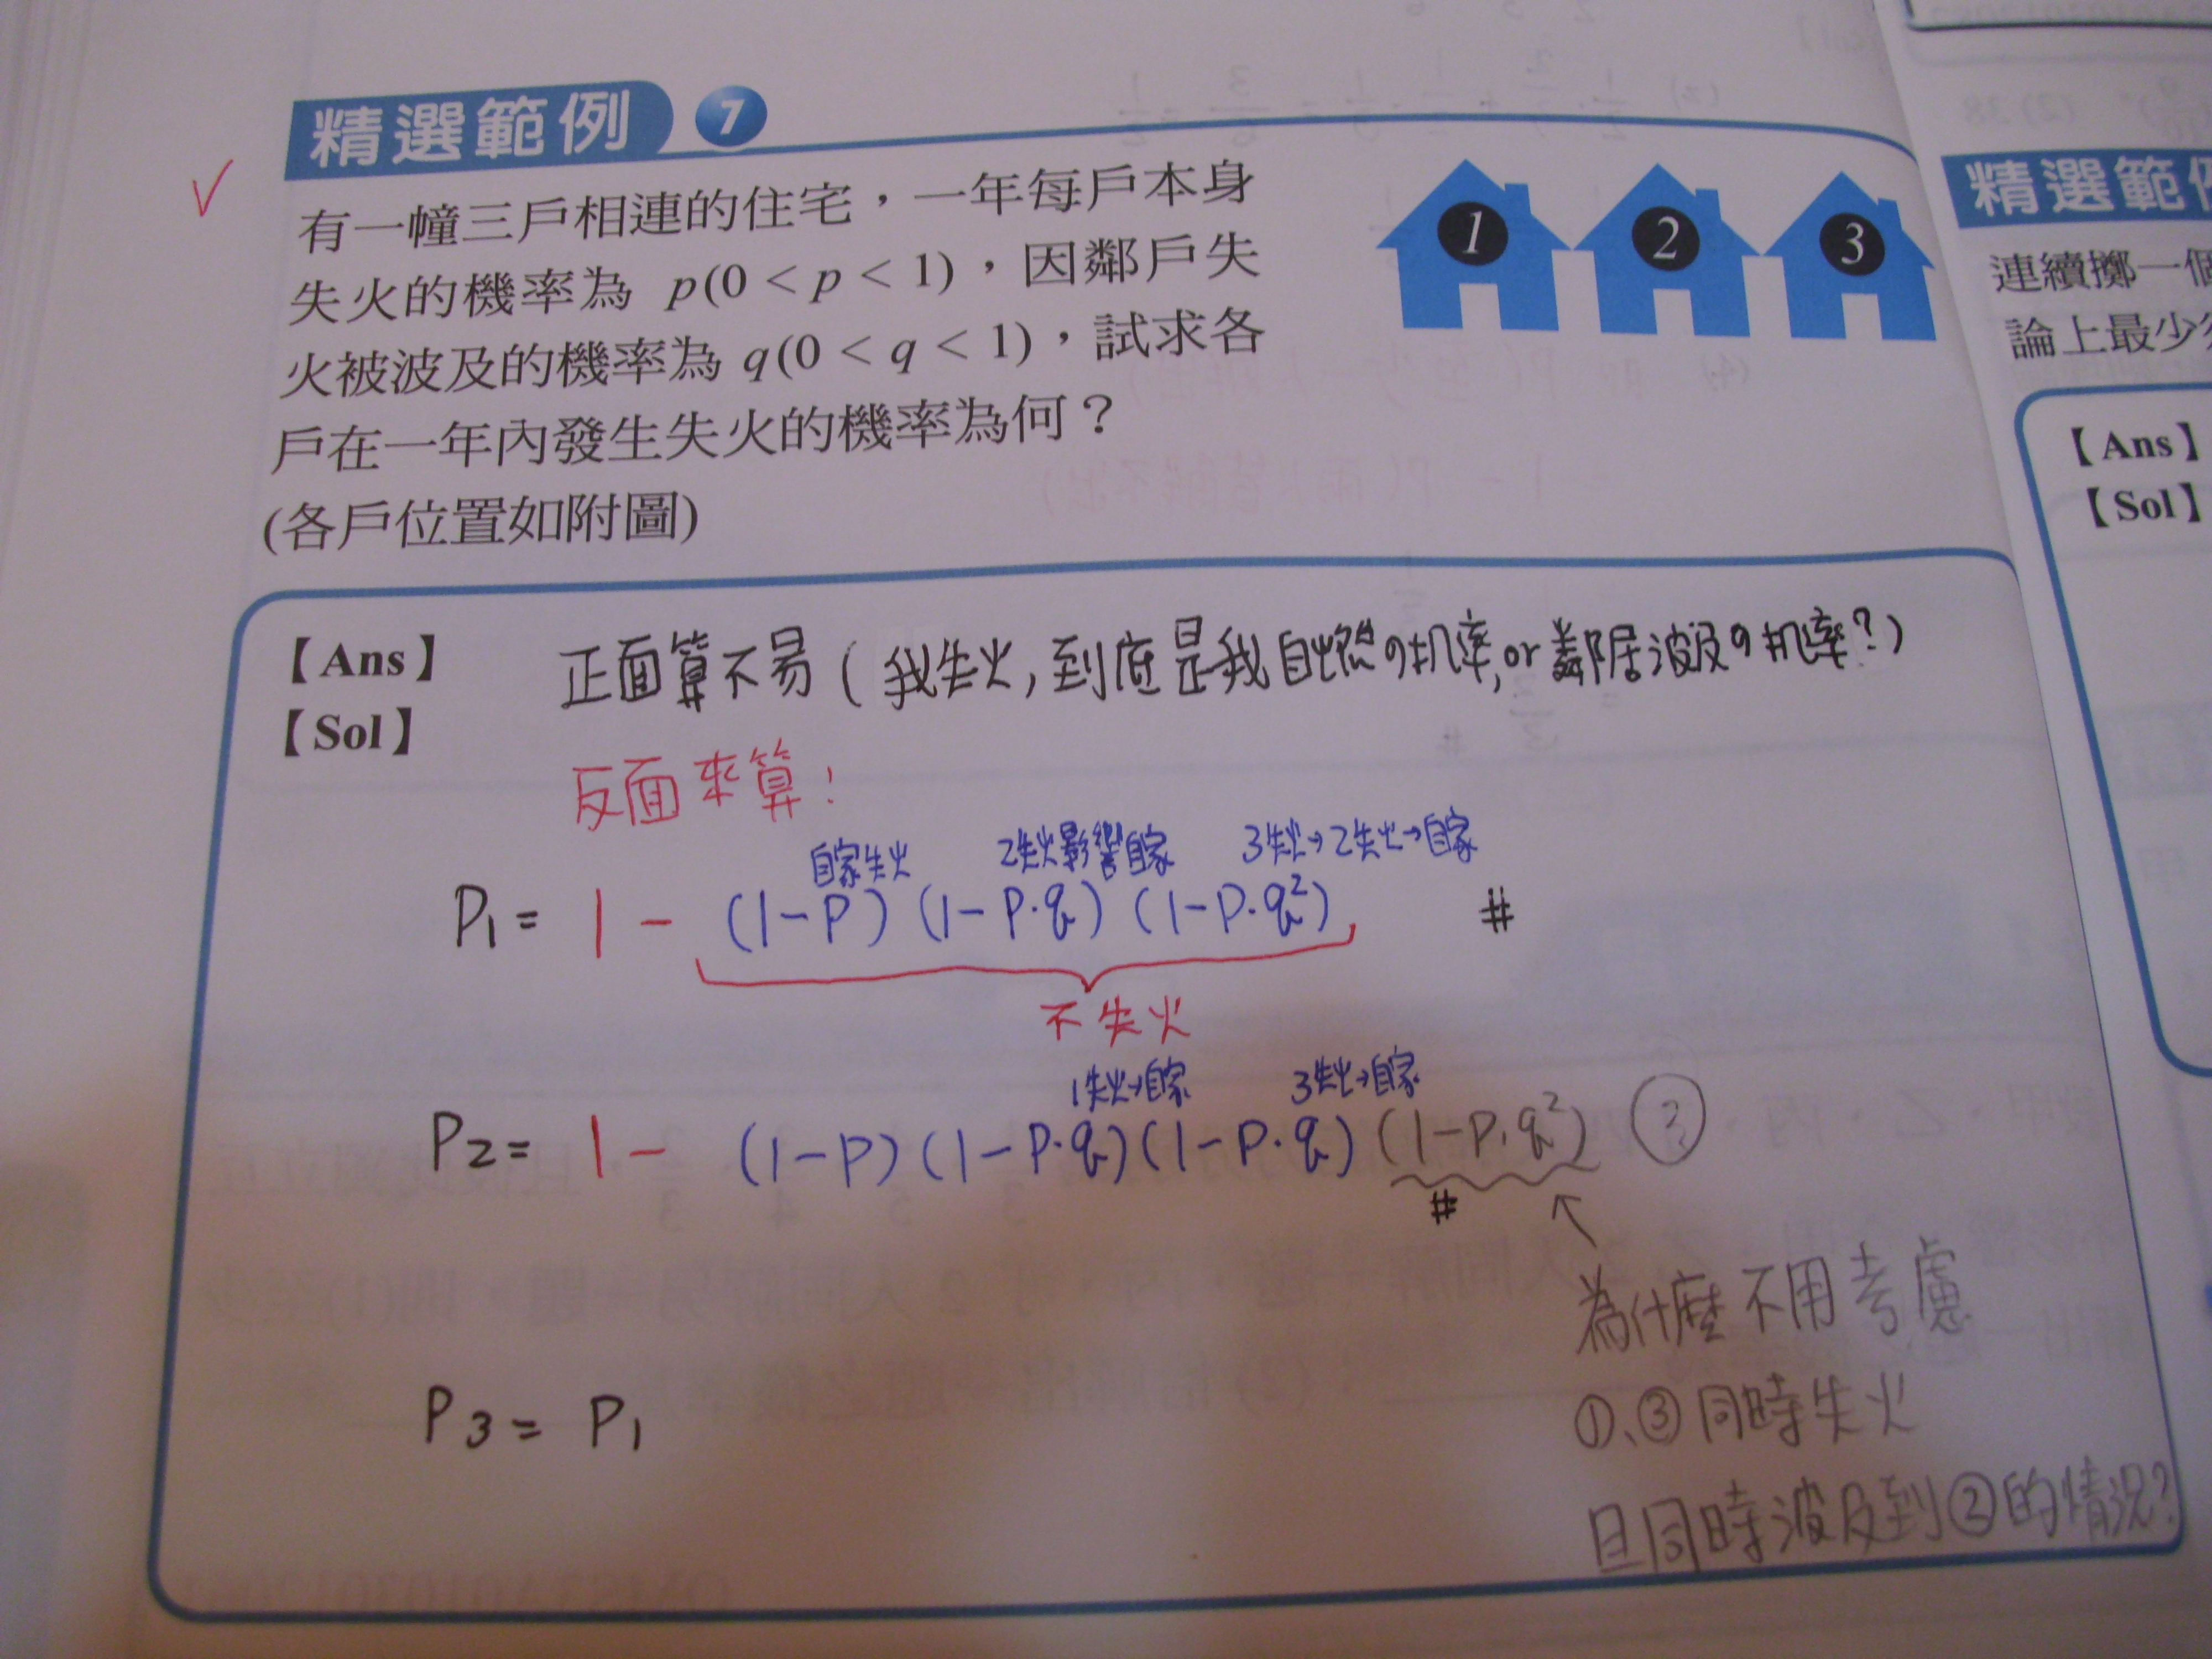 精選範例 7
有一幢三戶相連的住宅，一年每戶本身
失火的機率為 p(0 < p < 1)，因鄰戶失
火被波及的機率為 q(0 < q < 1)，試求各
戶在一年內發生失火的機率為何？
(各戶位置如附圖)
1 2 3
【Ans】
【Sol】
正面算不易 ( 我失火, 到底是我自燃の机率, or 鄰居波及の机率? )
反面來算!
自家失火 2失火影響自家 3失火→2失火→自家
P1 = 1 - (1-P) (1-P·q) (1-P·q²) #
不失火
1失火→自家 3失火→自家
P2 = 1 - (1-P) (1-P·q) (1-P·q) (1-P·q²) ?
#
↑
為什麼不用考慮
①、③同時失火
且同時波及到②的情況?
P3 = P1
(2) 38
精選範
連續擲一個
論上最少
【Ans】
【Sol】